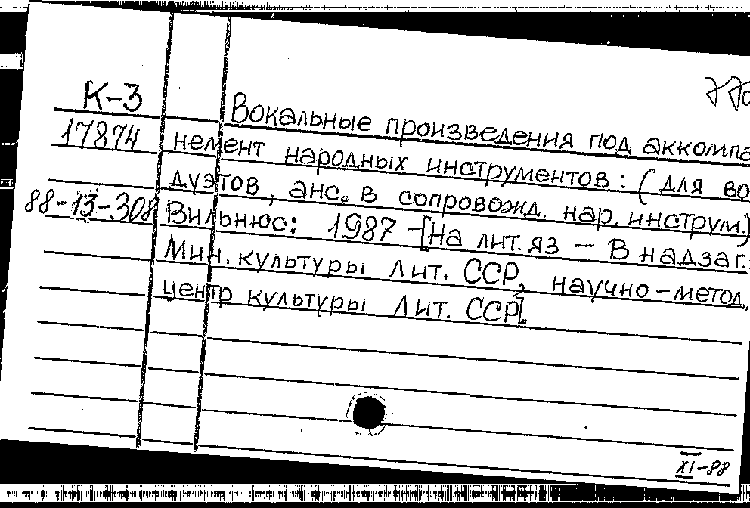 К-3
17874
88-13-308
Вокальные произведения под аккомпа
немент народных инструментов: (для во
дуэтов, анс. в сопровожд. нар. инструм.)
Вильнюс: 1987 -[На лит. яз - В надзаг.:
Мин. культуры Лит. ССР, научно-метод.
центр культуры Лит. ССР].
XI-88